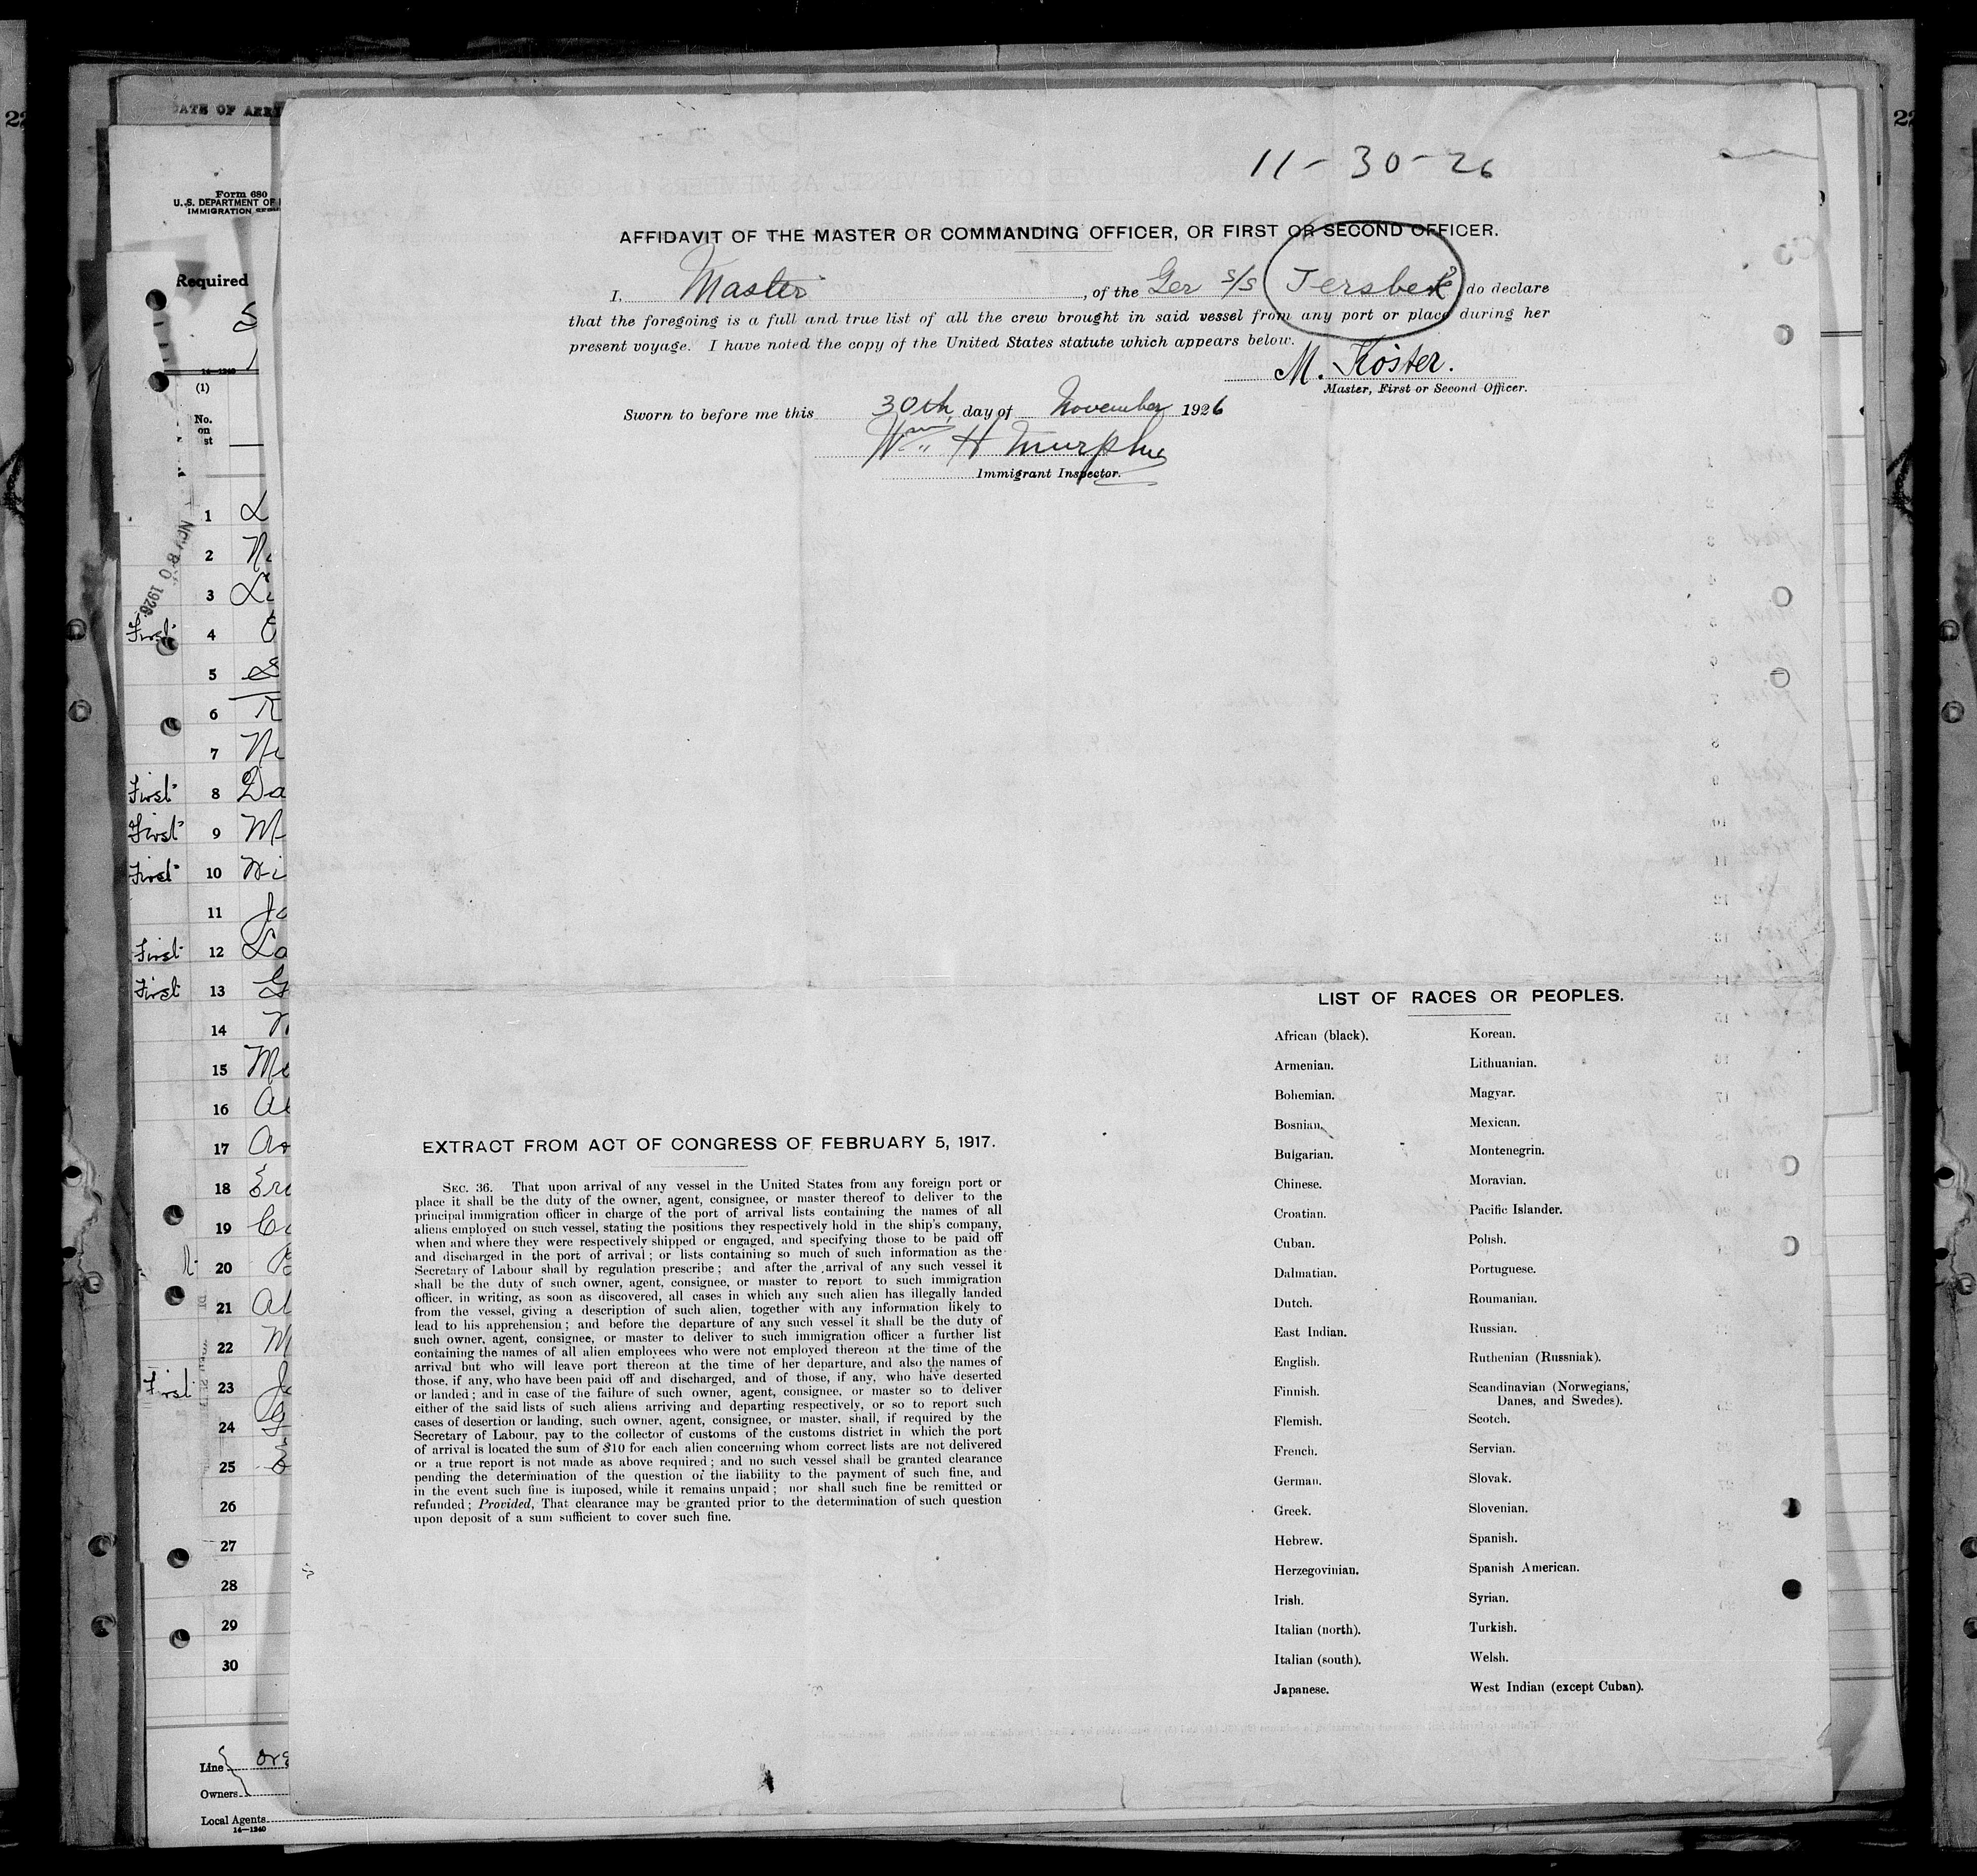 22
22
DATE OF ARRI
11-30-26
Form 680
U. S. DEPARTMENT OF
IMMIGRATION
Required
14-1240
(1)
No.
on
st
NOV 30 1926
1
2
3
First 4
5
6
7
First 8 Da
First 9 M
First 10
11 Jo
First 12 La
First 13
14
15
16
17
18
19
20
21 Al
22 M
First 23
24
25
26
27
28
29
30
Line
Owners
Local Agents
14-1240
AFFIDAVIT OF THE MASTER OR COMMANDING OFFICER, OR FIRST OR SECOND OFFICER.
I, Master, of the Ger s/s Jersbek, do declare
that the foregoing is a full and true list of all the crew brought in said vessel from any port or place during her
present voyage. I have noted the copy of the United States statute which appears below.
M. Köster.
Master, First or Second Officer.
Sworn to before me this 30th day of November 1926
Wm H Murphy
Immigrant Inspector.
EXTRACT FROM ACT OF CONGRESS OF FEBRUARY 5, 1917.
SEC. 36. That upon arrival of any vessel in the United States from any foreign port or
place it shall be the duty of the owner, agent, consignee, or master thereof to deliver to the
principal immigration officer in charge of the port of arrival lists containing the names of all
aliens employed on such vessel, stating the positions they respectively hold in the ship's company,
when and where they were respectively shipped or engaged, and specifying those to be paid off
and discharged in the port of arrival; or lists containing so much of such information as the
Secretary of Labour shall by regulation prescribe; and after the arrival of any such vessel it
shall be the duty of such owner, agent, consignee, or master to report to such immigration
officer, in writing, as soon as discovered, all cases in which any such alien has illegally landed
from the vessel, giving a description of such alien, together with any information likely to
lead to his apprehension; and before the departure of any such vessel it shall be the duty of
such owner, agent, consignee, or master to deliver to such immigration officer a further list
containing the names of all alien employees who were not employed thereon at the time of the
arrival but who will leave port thereon at the time of her departure, and also the names of
those, if any, who have been paid off and discharged, and of those, if any, who have deserted
or landed; and in case of the failure of such owner, agent, consignee, or master so to deliver
either of the said lists of such aliens arriving and departing respectively, or so to report such
cases of desertion or landing, such owner, agent, consignee, or master, shall, if required by the
Secretary of Labour, pay to the collector of customs of the customs district in which the port
of arrival is located the sum of $10 for each alien concerning whom correct lists are not delivered
or a true report is not made as above required; and no such vessel shall be granted clearance
pending the determination of the question of the liability to the payment of such fine, and
in the event such fine is imposed, while it remains unpaid; nor shall such fine be remitted or
refunded; Provided, That clearance may be granted prior to the determination of such question
upon deposit of a sum sufficient to cover such fine.
LIST OF RACES OR PEOPLES.
African (black).
Armenian.
Bohemian.
Bosnian.
Bulgarian.
Chinese.
Croatian.
Cuban.
Dalmatian.
Dutch.
East Indian.
English.
Finnish.
Flemish.
French.
German.
Greek.
Hebrew.
Herzegovinian.
Irish.
Italian (north).
Italian (south).
Japanese.
Korean.
Lithuanian.
Magyar.
Mexican.
Montenegrin.
Moravian.
Pacific Islander.
Polish.
Portuguese.
Roumanian.
Russian.
Ruthenian (Russniak).
Scandinavian (Norwegians,
Danes, and Swedes).
Scotch.
Servian.
Slovak.
Slovenian.
Spanish.
Spanish American.
Syrian.
Turkish.
Welsh.
West Indian (except Cuban).